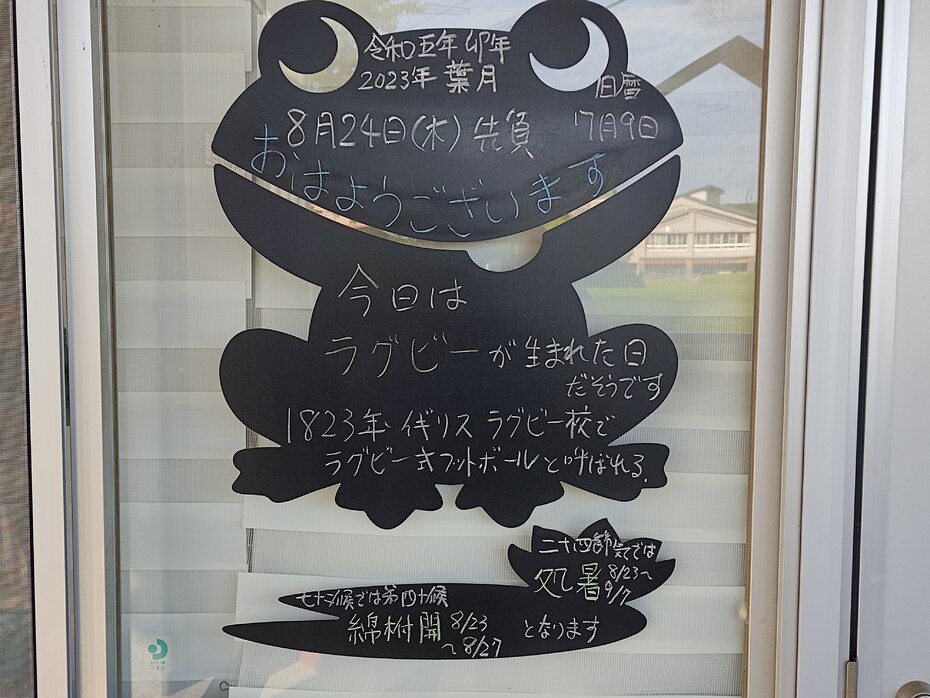 令和五年 卯年
2023年 葉月
旧暦
8月24日(木) 先負 7月9日
おはようございます
今日は
ラグビーが生まれた日
だそうです
1823年 イギリス ラグビー校で
ラグビー式フットボールと呼ばれる。
二十四節気では
処暑 8/23～
9/7
七十二候では第四十候
綿柎開 8/23
～8/27
となります